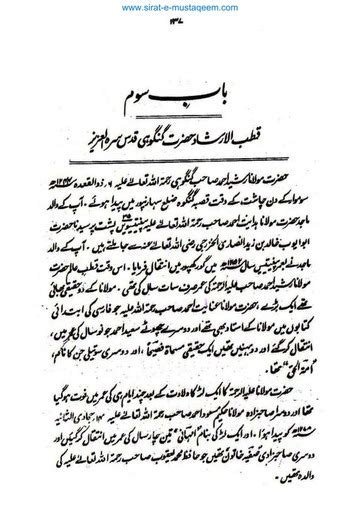 www.sirat-e-mustaqeem.com
۱۳۷
باب سوم
قطب الارشاد حضرت گنگوہی قدس سرہ العزیز
حضرت مولانا رشید احمد صاحب گنگوہی رحمۃ اللہ تعالےٰ علیہ ۶ ذوالقعدہ ۱۲۴۴ھ
سوموار کے دن چاشت کے وقت قصبہ گنگوہ ضلع سہارنپور میں پیدا ہوئے۔ آپ کے والد
ماجد حضرت مولانا ہدایت احمد صاحب رحمۃ اللہ تعالےٰ علیہ پینتیسویں ۳۵ پشت پر سیدنا حضرت
ابو ایوب خالد بن زید انصاری خزرجی رضی اللہ تعالےٰ عنہ سے جا ملتے ہیں۔ آپ کے والد
ماجد نے بعمر پینتیس سال ۱۲۵۲ھ میں گورکھپور میں انتقال فرمایا۔ اس وقت قطب عالم حضرت
مولانا رشید احمد صاحب علیہ الرحمۃ کی عمر صرف سات سال کی تھی۔ مولانا کے دو حقیقی بھائی
تھے ایک بڑے، حضرت مولانا عنایت احمد صاحب رحمۃ اللہ علیہ جو فارسی کی ابتدائی
کتابوں میں مولانا کے استاد بھی تھے اور دوسرے چھوٹے سعید احمد جو نو سال کی عمر میں،
انتقال کر گئے اور دو بہنیں تھیں ایک حقیقی مسماۃ فصیحاً، اور دوسری سوتیلی جن کا نام
اُمۃ الحق تھا۔
حضرت مولانا علیہ الرحمۃ کا ایک لڑکا ولادت کے بعد چند ایام ہی کی عمر میں فوت ہو گیا
تھا اور دوسرا صاحبزادہ مولانا حکیم مسعود احمد صاحب رحمۃ اللہ تعالےٰ علیہ جمادی الثانیہ
کو پیدا ہوا۔ اور ایک لڑکی بنام تین چار سال کی عمر میں انتقال کر گئیں اور
دوسری صاحبزادی صفیہ خاتون تھیں جو حافظ محمد یعقوب صاحب رحمۃ اللہ تعالےٰ علیہ کی
والدہ تھیں۔